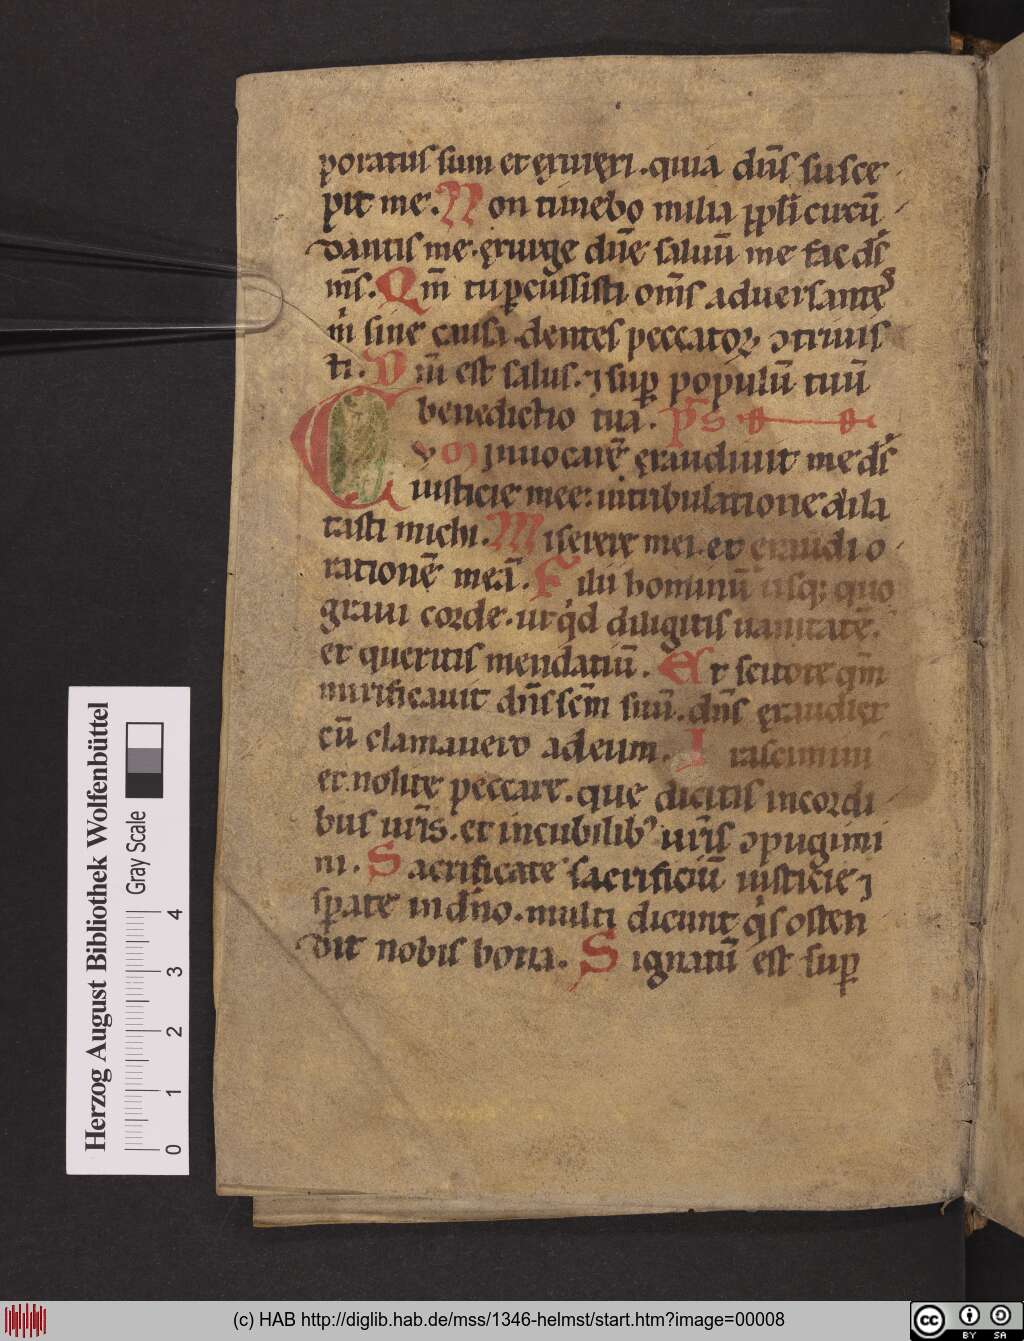 poratus sum et exurrexi. quia dn̄s susce
pit me. Non timebo milia ppl̄i circū
dantis me. exurge dn̄e saluū me fac ds̄
m̄s. Qm̄ tu ꝑcussisti om̄s aduersantes
m̄ sine causa dentes peccatoꝝ ꝯtriuis
ti. Dn̄i est salus. ⁊ suꝑ populū tuū
benedictio tua. ps
Cum inuocarē exaudiuit me ds̄
iusticie mee: in tribulatione dila
tasti michi. Miserere mei. et exaudi o
rationē meā. Filii hominū usqꝫ quo
graui corde. ut qͥd diligitis uanitatē.
et queritis mendatiū. Et scitote qm̄
mirificauit dn̄s scm̄ suū. dn̄s exaudiet
cū clamauero ad eum. Irascimini
et nolite peccare. que dicitis in cordi
bus ur̄is. et in cubilibꝰ ur̄is ꝯpugimi
ni. Sacrificate sacrificiū iusticie ⁊
sꝑate in dn̄o. multi dicunt qͥs osten
dit nobis bona. Signatū est suꝑ
Herzog August Bibliothek Wolfenbüttel
Gray Scale
0 1 2 3 4
(c) HAB http://diglib.hab.de/mss/1346-helmst/start.htm?image=00008
cc BY SA